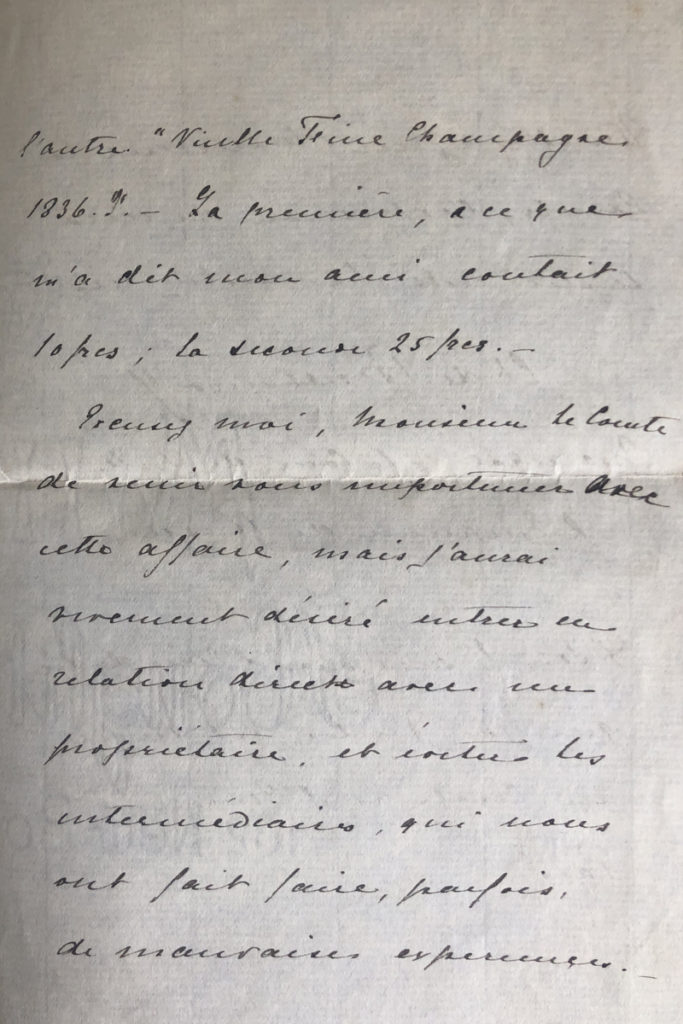 l'autre "Vieille Fine Champagne
1836." — La première, a ce que
m'a dit mon ami coutait
10 frcs ; la seconde 25 frcs. —
Excusez moi, Monsieur le Comte
de venir vous importuner avec
cette affaire, mais j'aurai
vivement désiré entrer en
relation directe avec un
propriétaire, et éviter les
intermédiaires, qui nous
ont fait faire, parfois,
de mauvaises experiences. —